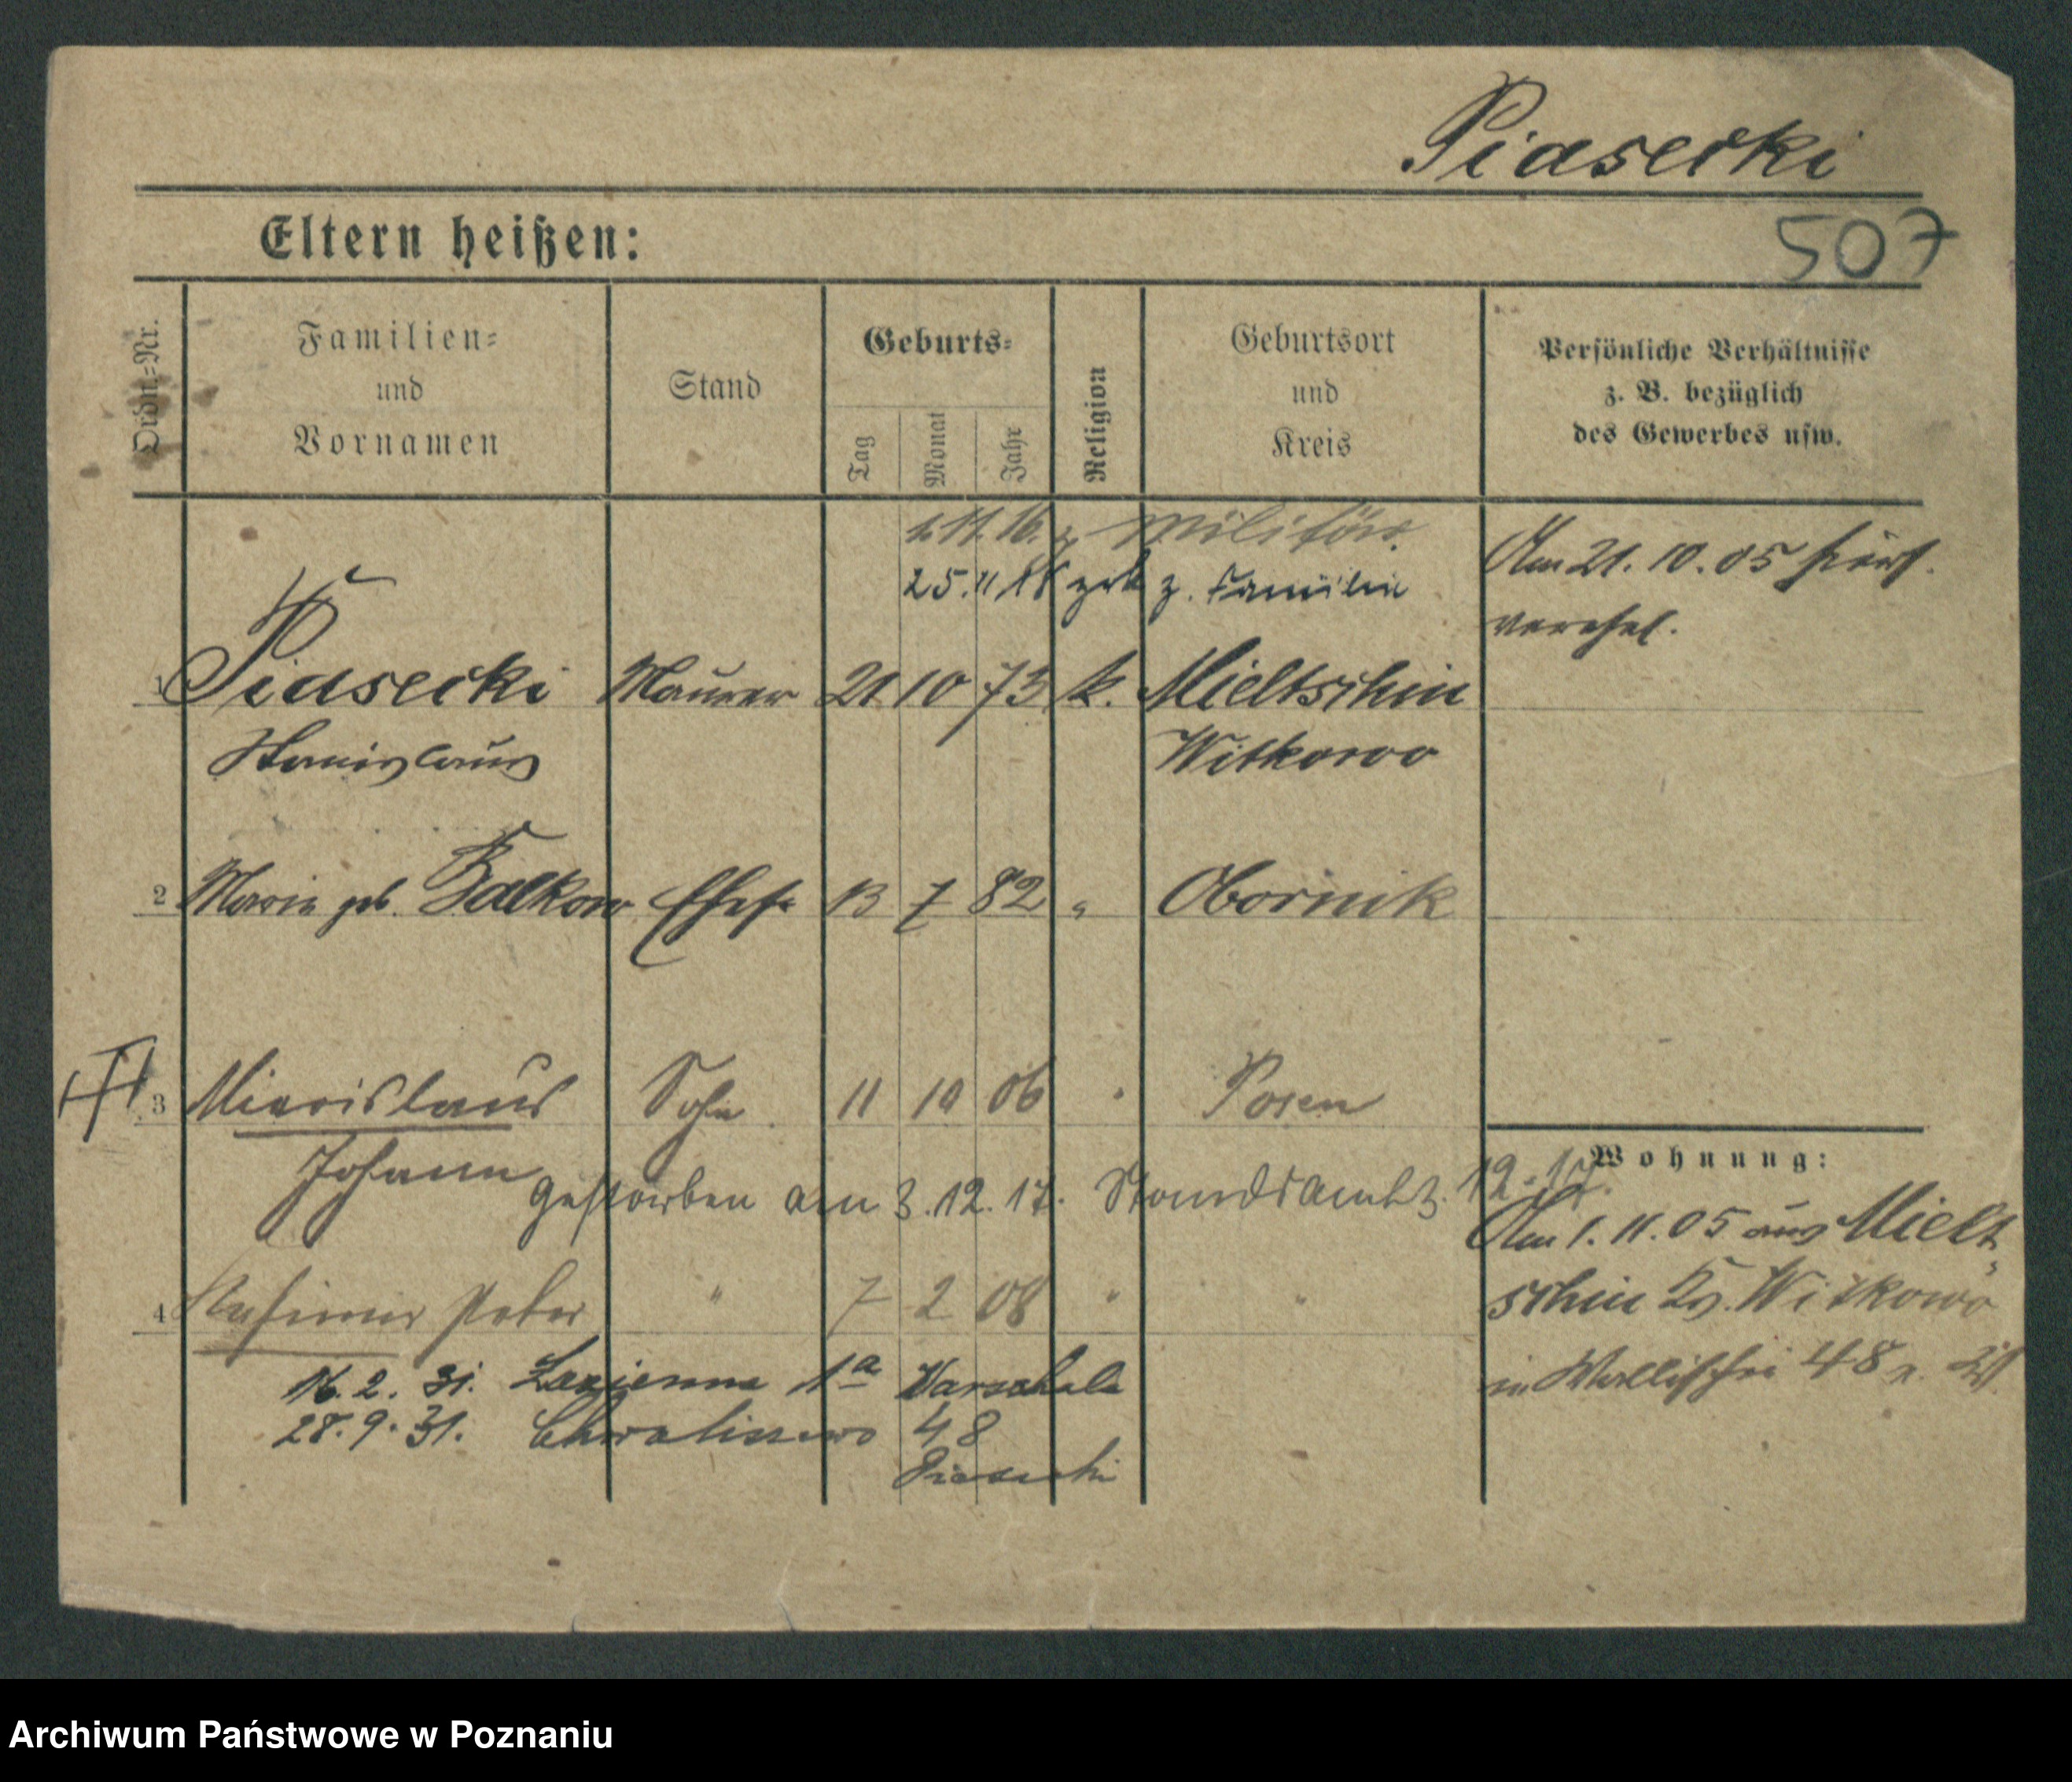 Piasecki
Eltern heißen:
507
Ordn.-Nr.
Familien-
und
Vornamen
Stand
Geburts-
Tag
Monat
Jahr
Religion
Geburtsort
und
Kreis
Persönliche Verhältnisse
z. B. bezüglich
des Gewerbes usw.
1.11.16. z. Militär.
25.11.18 zrk z. Familie
Am 21. 10. 05 hier
verehel.
1 Piasecki Maurer 21 10 73 k. Mieltschin
Stanislaus Witkowo
2 Marie geb. Falkow Ehefr 13 7 82 " Obornik
3 Miecislaus Sohn 11 10 06 " Posen
Johann
gestorben am 3.12.17. Standsamt 3. 12.17.
4 Kasimir Peter " 7 2 08 " "
16. 2. 31. Lazienna 1a Warschala
28. 9. 31. Chwaliszewo 48
Piasecki
Wohnung:
Am 1. 11. 05 aus Mielt
schin Kr. Witkowo
in Wallischei 48
Archiwum Państwowe w Poznaniu